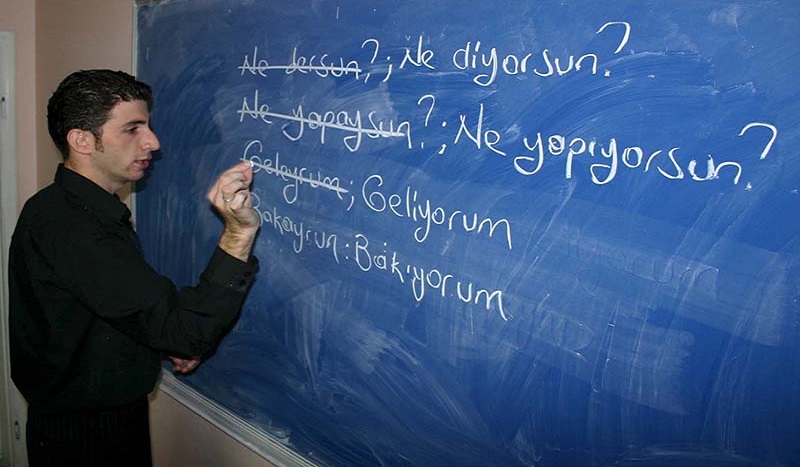 Ne dersun?; Ne diyorsun?
Ne yapaysun?; Ne yapıyorsun?
Geleyrum; Geliyorum
Bakayrun: Bakıyorum